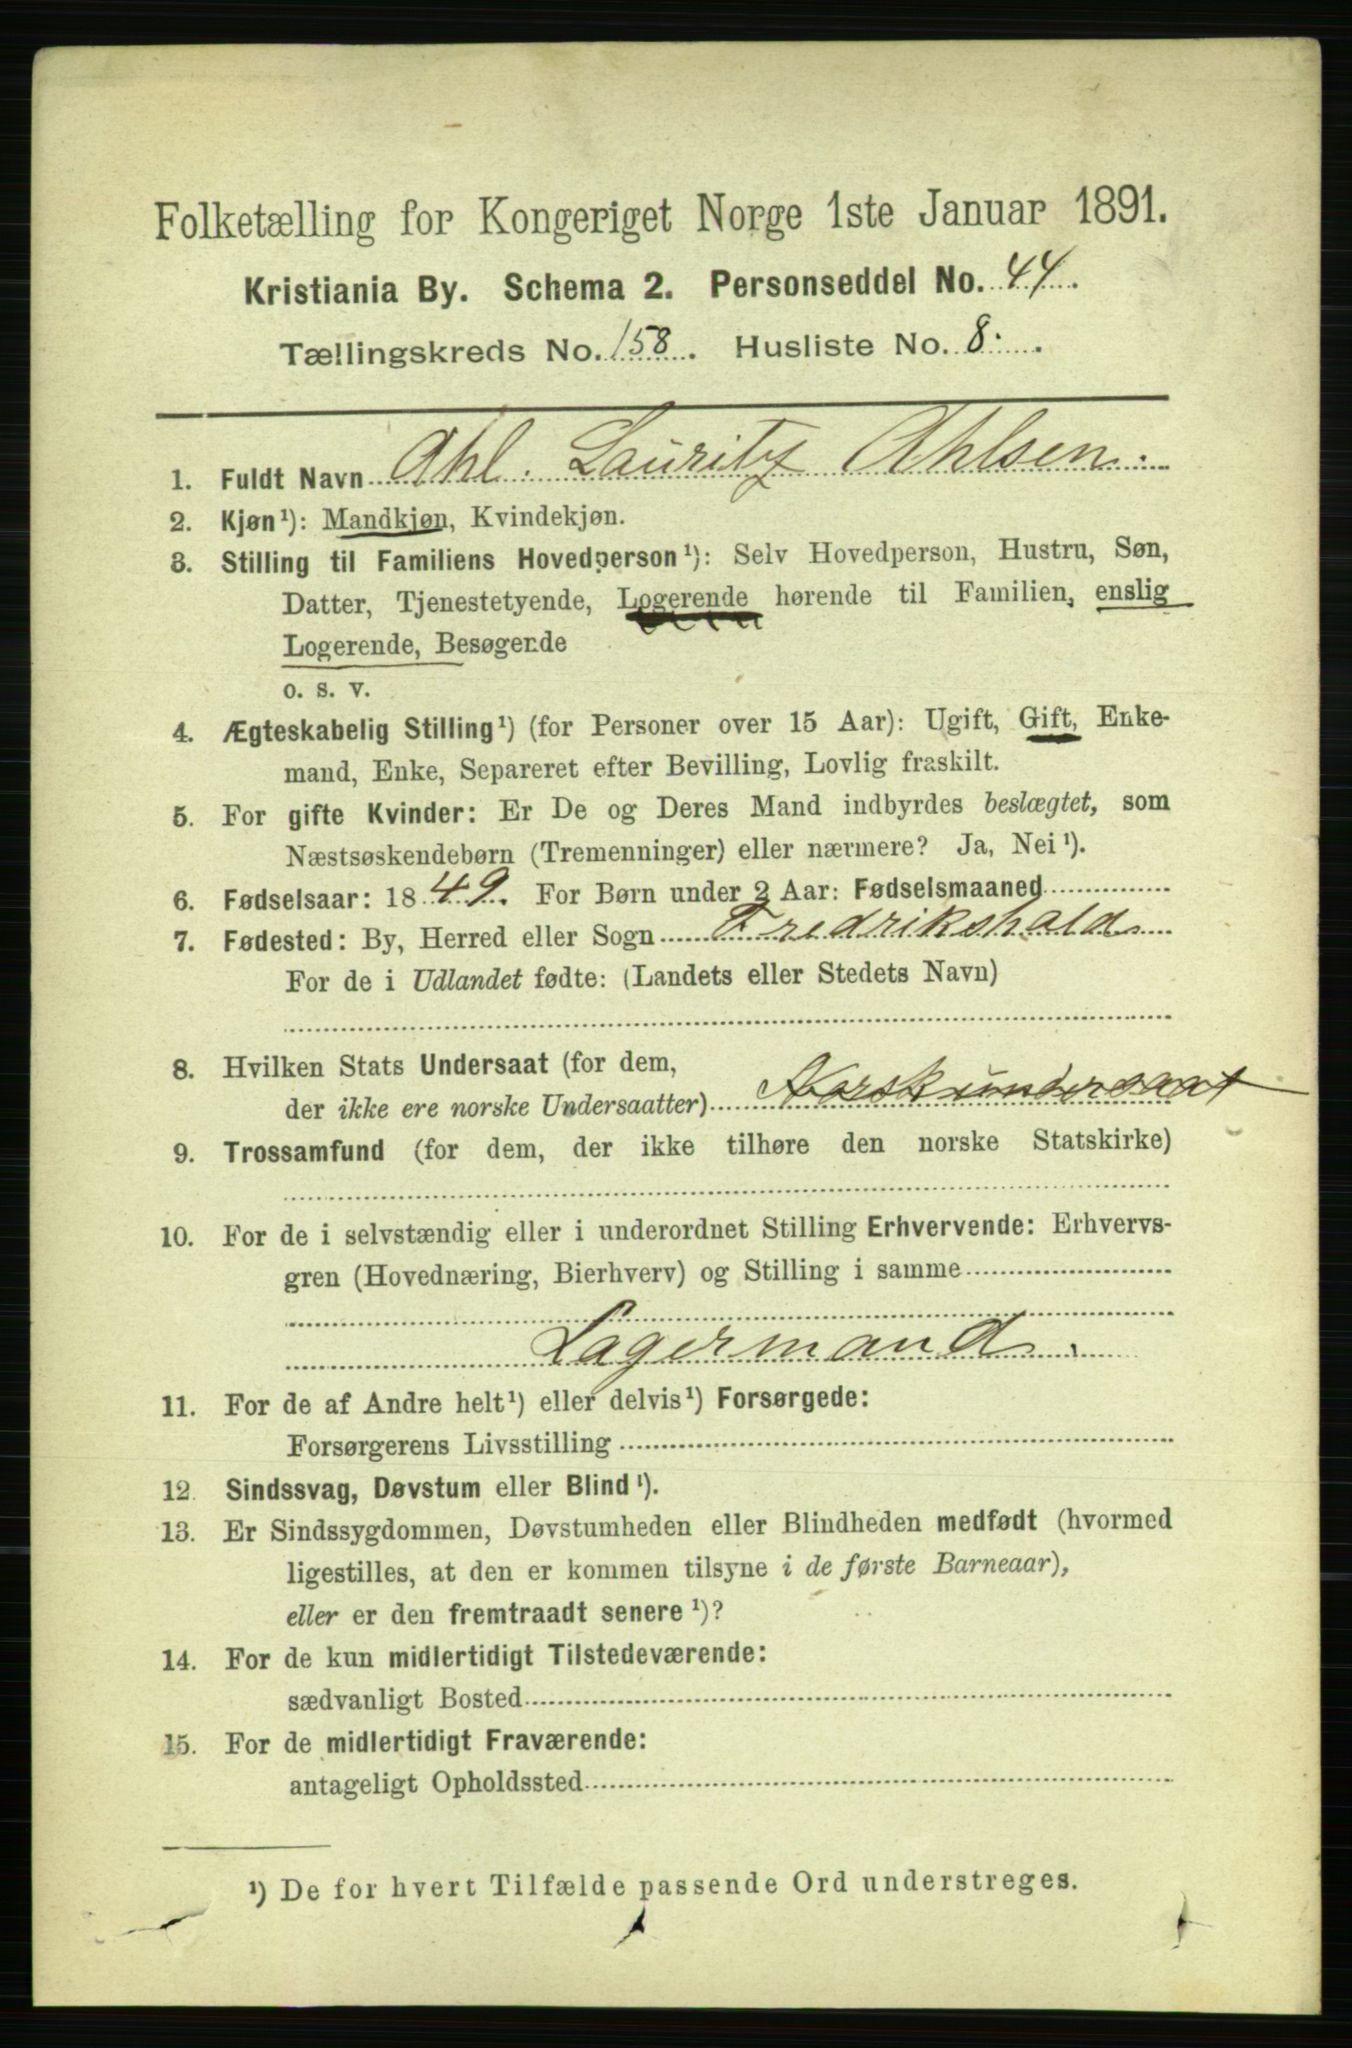 Folketælling for Kongeriget Norge 1ste Januar 1891.
Kristiania By. Schema 2. Personseddel No. 44.
Tællingskreds No. 158. Husliste No. 8.
1. Fuldt Navn Ahl. Lauritz Ahlsen.
2. Kjøn¹): Mandkjøn, Kvindekjøn.
3. Stilling til Familiens Hovedperson¹): Selv Hovedperson, Hustru, Søn,
Datter, Tjenestetyende, Logerende hørende til Familien, enslig
Logerende, Besøgende
o. s. v.
4. Ægteskabelig Stilling¹) (for Personer over 15 Aar): Ugift, Gift, Enke-
mand, Enke, Separeret efter Bevilling, Lovlig fraskilt.
5. For gifte Kvinder: Er De og Deres Mand indbyrdes beslægtet, som
Næstsøskendebørn (Tremenninger) eller nærmere? Ja, Nei¹).
6. Fødselsaar: 1849. For Børn under 2 Aar: Fødselsmaaned
7. Fødested: By, Herred eller Sogn Fredrikshald
For de i Udlandet fødte: (Landets eller Stedets Navn)
8. Hvilken Stats Undersaat (for dem,
der ikke ere norske Undersaatter) Norsk undersaat
9. Trossamfund (for dem, der ikke tilhøre den norske Statskirke)
10. For de i selvstændig eller i underordnet Stilling Erhvervende: Erhvervs-
gren (Hovednæring, Bierhverv) og Stilling i samme
Lagermand.
11. For de af Andre helt¹) eller delvis¹) Forsørgede:
Forsørgerens Livsstilling
12. Sindssvag, Døvstum eller Blind¹).
13. Er Sindssygdommen, Døvstumheden eller Blindheden medfødt (hvormed
ligestilles, at den er kommen tilsyne i de første Barneaar),
eller er den fremtraadt senere¹)?
14. For de kun midlertidigt Tilstedeværende:
sædvanligt Bosted
15. For de midlertidigt Fraværende:
antageligt Opholdssted
¹) De for hvert Tilfælde passende Ord understreges.